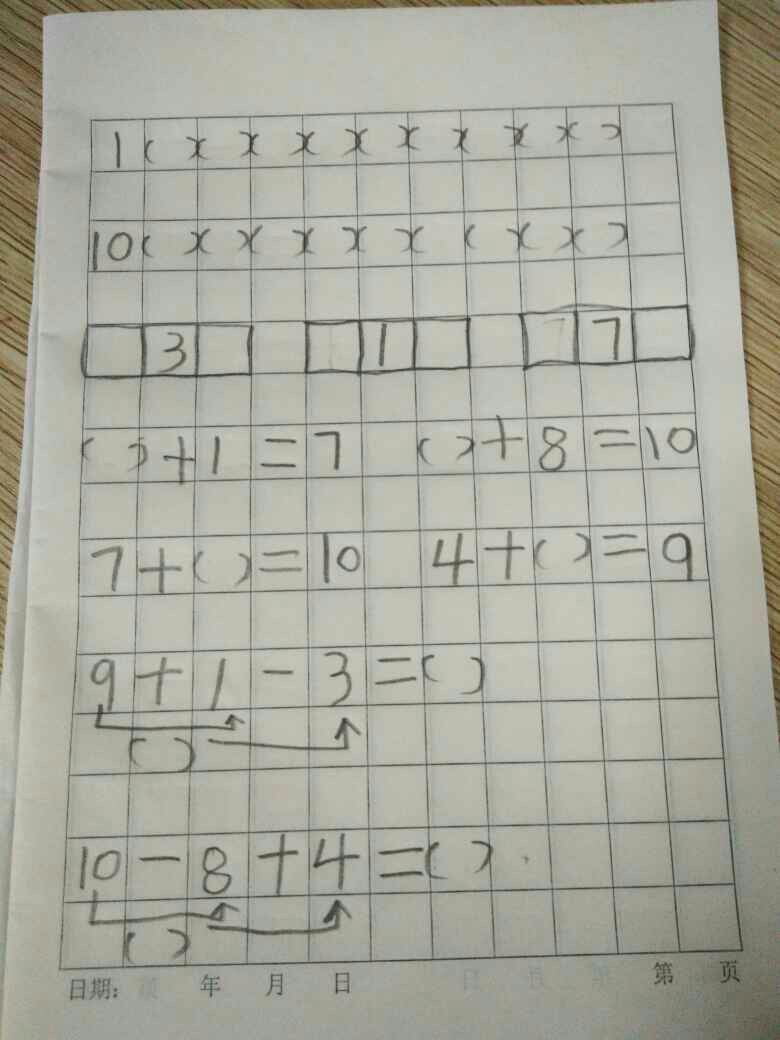 1( )( )( )( )( )( )( )( )( )
10( )( )( )( )( )( ( )( )( )
3 1 7
( )+1=7 ( )+8=10
7+( )=10 4+( )=9
9+1-3=( )
( )
10-8+4=( )
( )
日期: 年 月 日 第 页